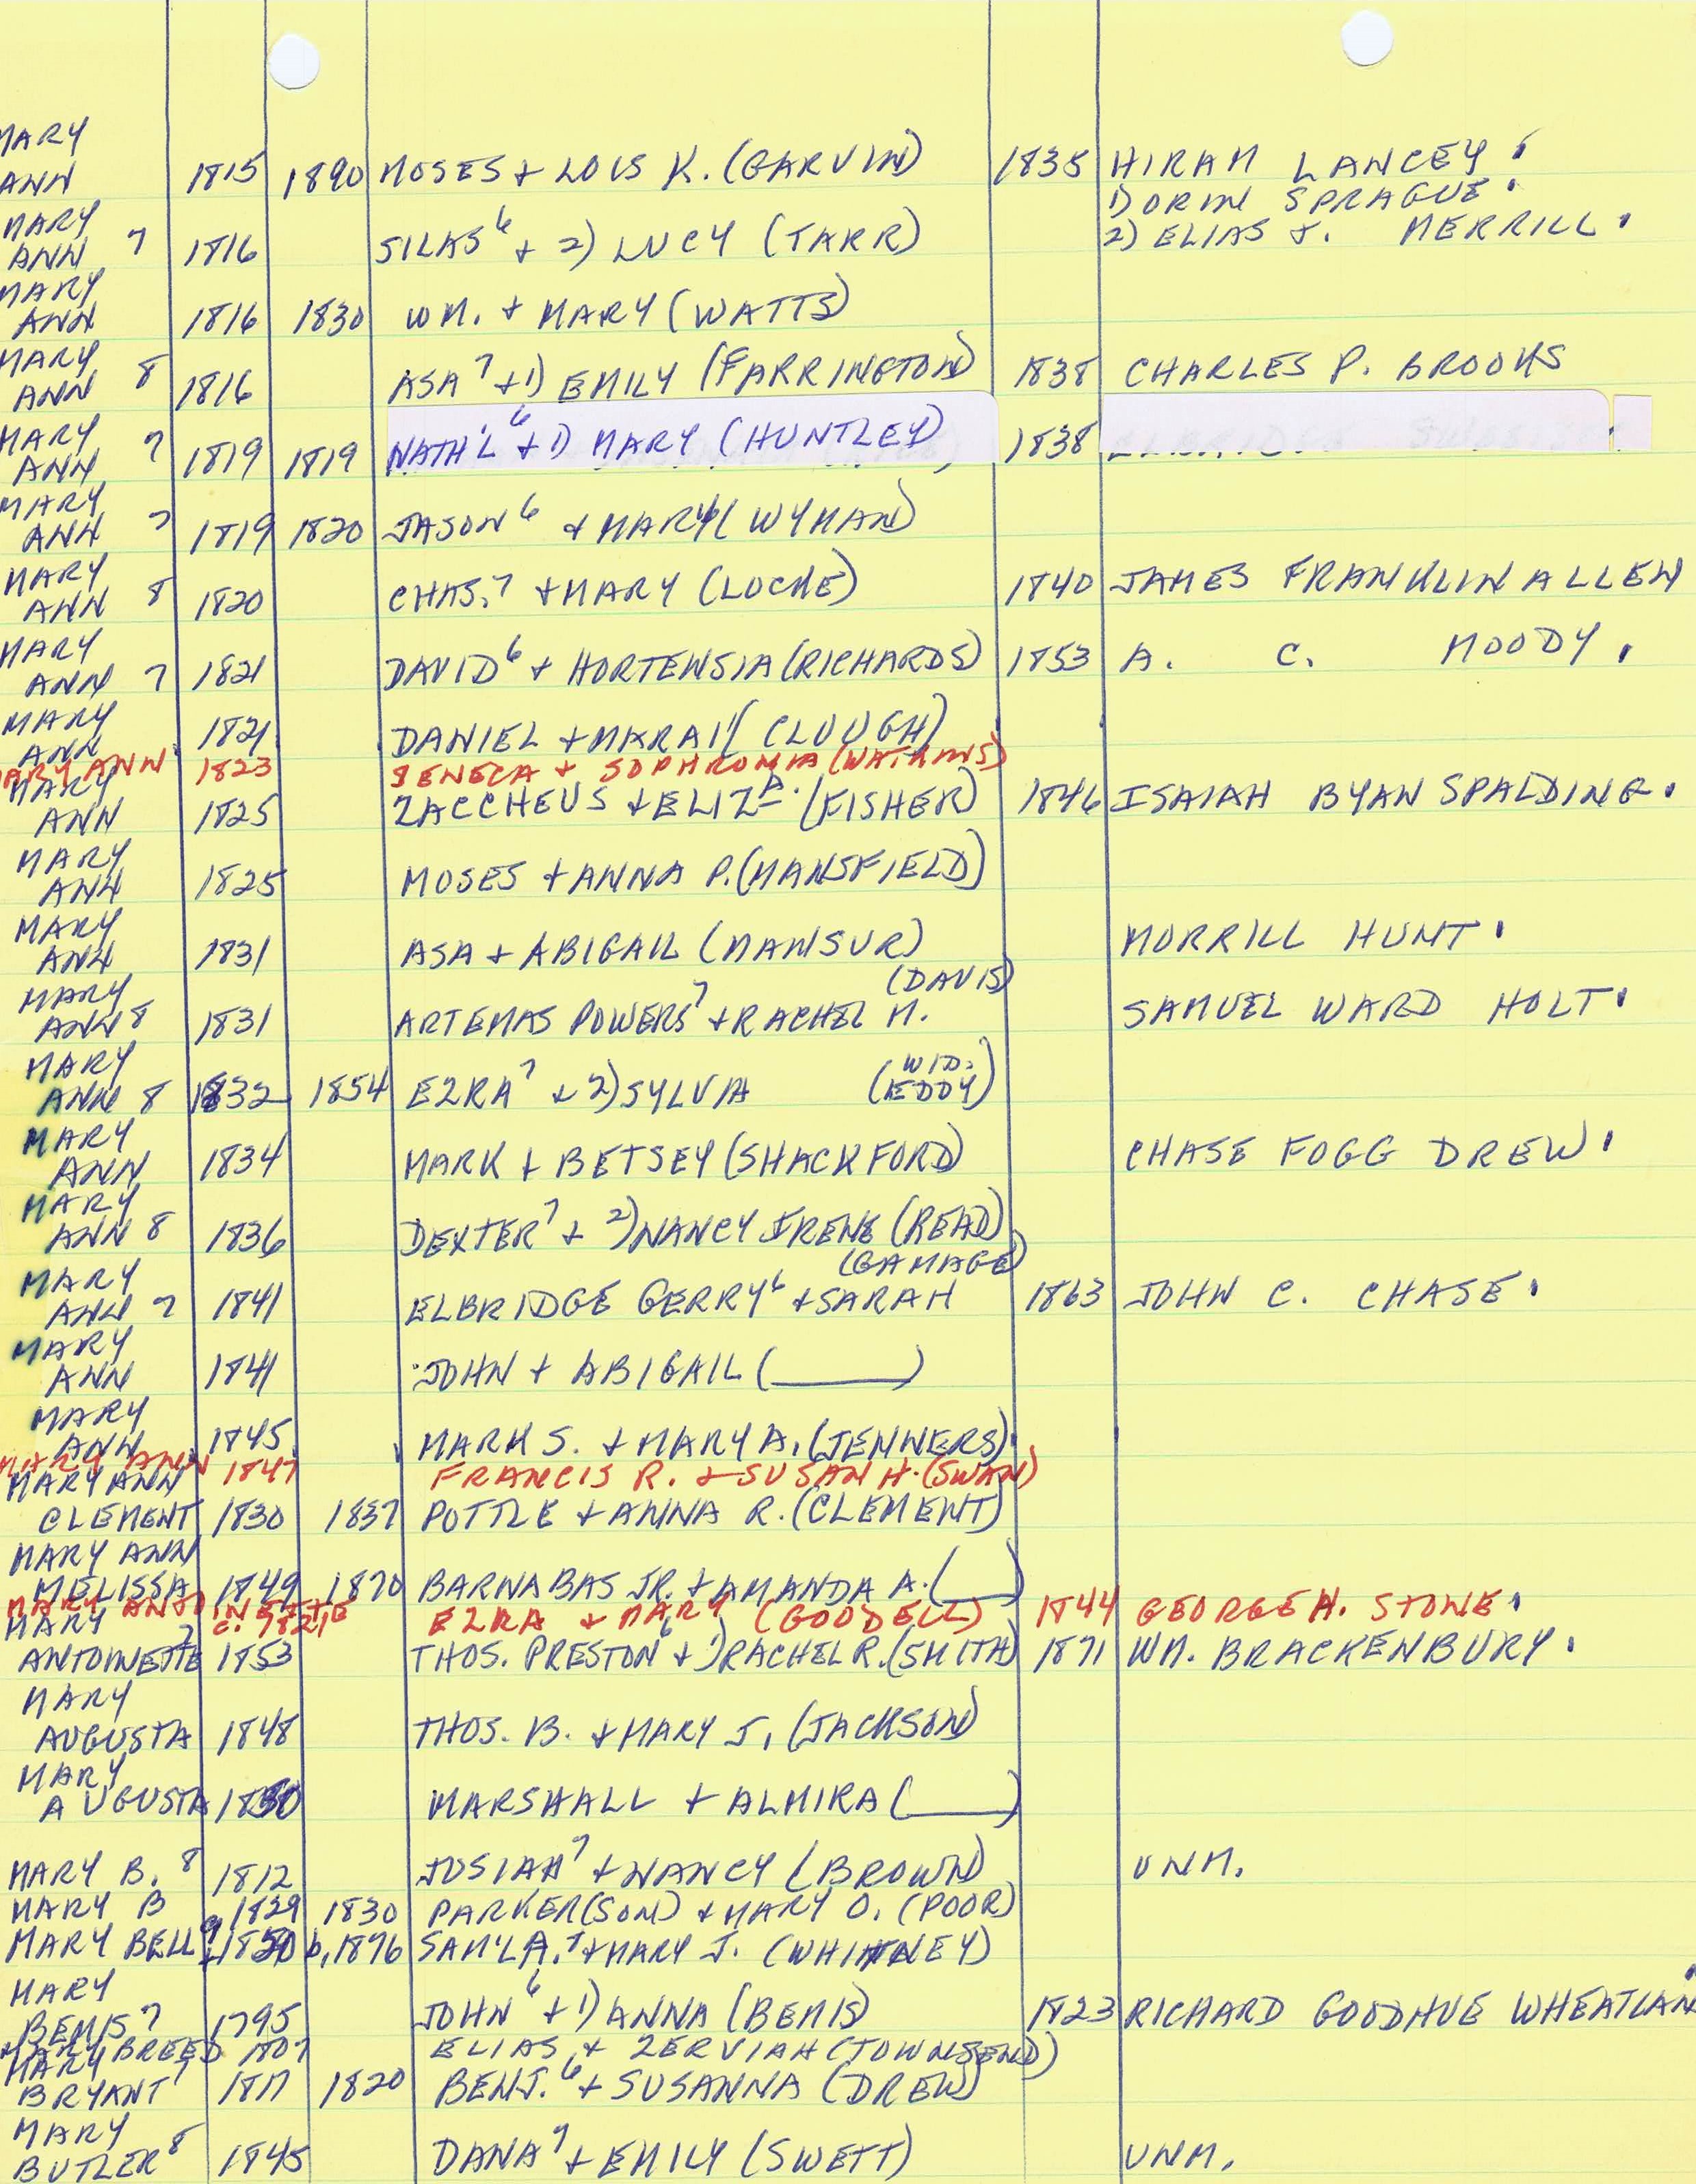 MARY
ANN 1815 1890 MOSES + LOIS K. (GARVIN) 1835 HIRAM LANCEY.
1) ORIN SPRAGUE.
MARY
ANN 7 1816 SILAS 6 + 2) LUCY (TARR) 2) ELIAS J. MERRILL.
MARY
ANN 1816 1830 WM. + MARY (WATTS)
MARY
ANN 8 1816 ASA 7 + 1) EMILY (FARRINGTON) 1838 CHARLES P. BROOKS
MARY
ANN 7 1819 1819 NATH'L 6 + 1) MARY (HUNTLEY) 1838
MARY
ANN 7 1819 1820 JASON 6 + MARY (WYMAN)
MARY
ANN 8 1820 CHAS. 7 + MARY (LOCKE) 1840 JAMES FRANKLIN ALLEN
MARY
ANN 7 1821 DAVID 6 + HORTENSIA (RICHARDS) 1853 A. C. MOODY.
MARY
ANN 1821 DANIEL + (CLOUGH)
MARY ANN 1823 SENECA + SOPHRONIA (WATKINS)
MARY
ANN 1825 ZACCHEUS + ELIZH. (FISHER) 1846 ISAIAH BYAN SPALDING.
MARY
ANN 1825 MOSES + ANNA P. (MANSFIELD)
MARY
ANN 1831 ASA + ABIGAIL (MANSUR) MORRILL HUNT.
(DAVIS)
MARY
ANN 8 1831 ARTEMAS POWERS 7 + RACHEL M. SAMUEL WARD HOLT.
MARY (WID.
ANN 8 1832 1854 EZRA 7 + 2) SYLVIA (EDDY)
MARY
ANN 1834 MARK + BETSEY (SHACKFORD) CHASE FOGG DREW.
MARY
ANN 8 1836 DEXTER 7 + 2) NANCY IRENE (READ)
(GAMAGE)
MARY
ANN 7 1841 ELBRIDGE GERRY 6 + SARAH 1863 JOHN C. CHASE.
MARY
ANN 1841 JOHN + ABIGAIL (______)
MARY
ANN 1845 MARK S. + MARY A. (JENNERS)
MARY ANN 1847 FRANCIS R. + SUSAN H. (SWAN)
MARY ANN
CLEMENT 1830 1837 POTTLE + ANNA R. (CLEMENT)
MARY ANN
MELISSA 1849 1870 BARNABAS JR. + AMANDA A. (___)
MARY ANTOINETTE c. 1821 EZRA + MARY (GOODELL) 1844 GEORGE H. STONE.
MARY
ANTOINETTE 7 1853 THOS. PRESTON 6 + 1) RACHEL R. (SMITH) 1871 WM. BRACKENBURY.
MARY
AUGUSTA 1848 THOS. B. + MARY J. (JACKSON)
MARY
AUGUSTA 1850 MARSHALL + ALMIRA (_____)
MARY B. 8 1812 JOSIAH 7 + NANCY (BROWN) UNM.
MARY B 1829 1830 PARKER(SON) + MARY O. (POOR)
MARY BELL 1850 b. 1876 SAM'L A. + MARY J. (WHITNEY)
MARY
BEMIS 7 1795 JOHN 6 + 1) ANNA (BEMIS) 1823 RICHARD GOODHUE WHEATLAN
MARY BREED 1807 ELIAS + ZERVIAH (TOWNSEND)
MARY
BRYANT 7 1817 1820 BENJ. 6 + SUSANNA (DREW)
MARY
BUTLER 8 1845 DANA 7 + EMILY (SWETT) UNM.